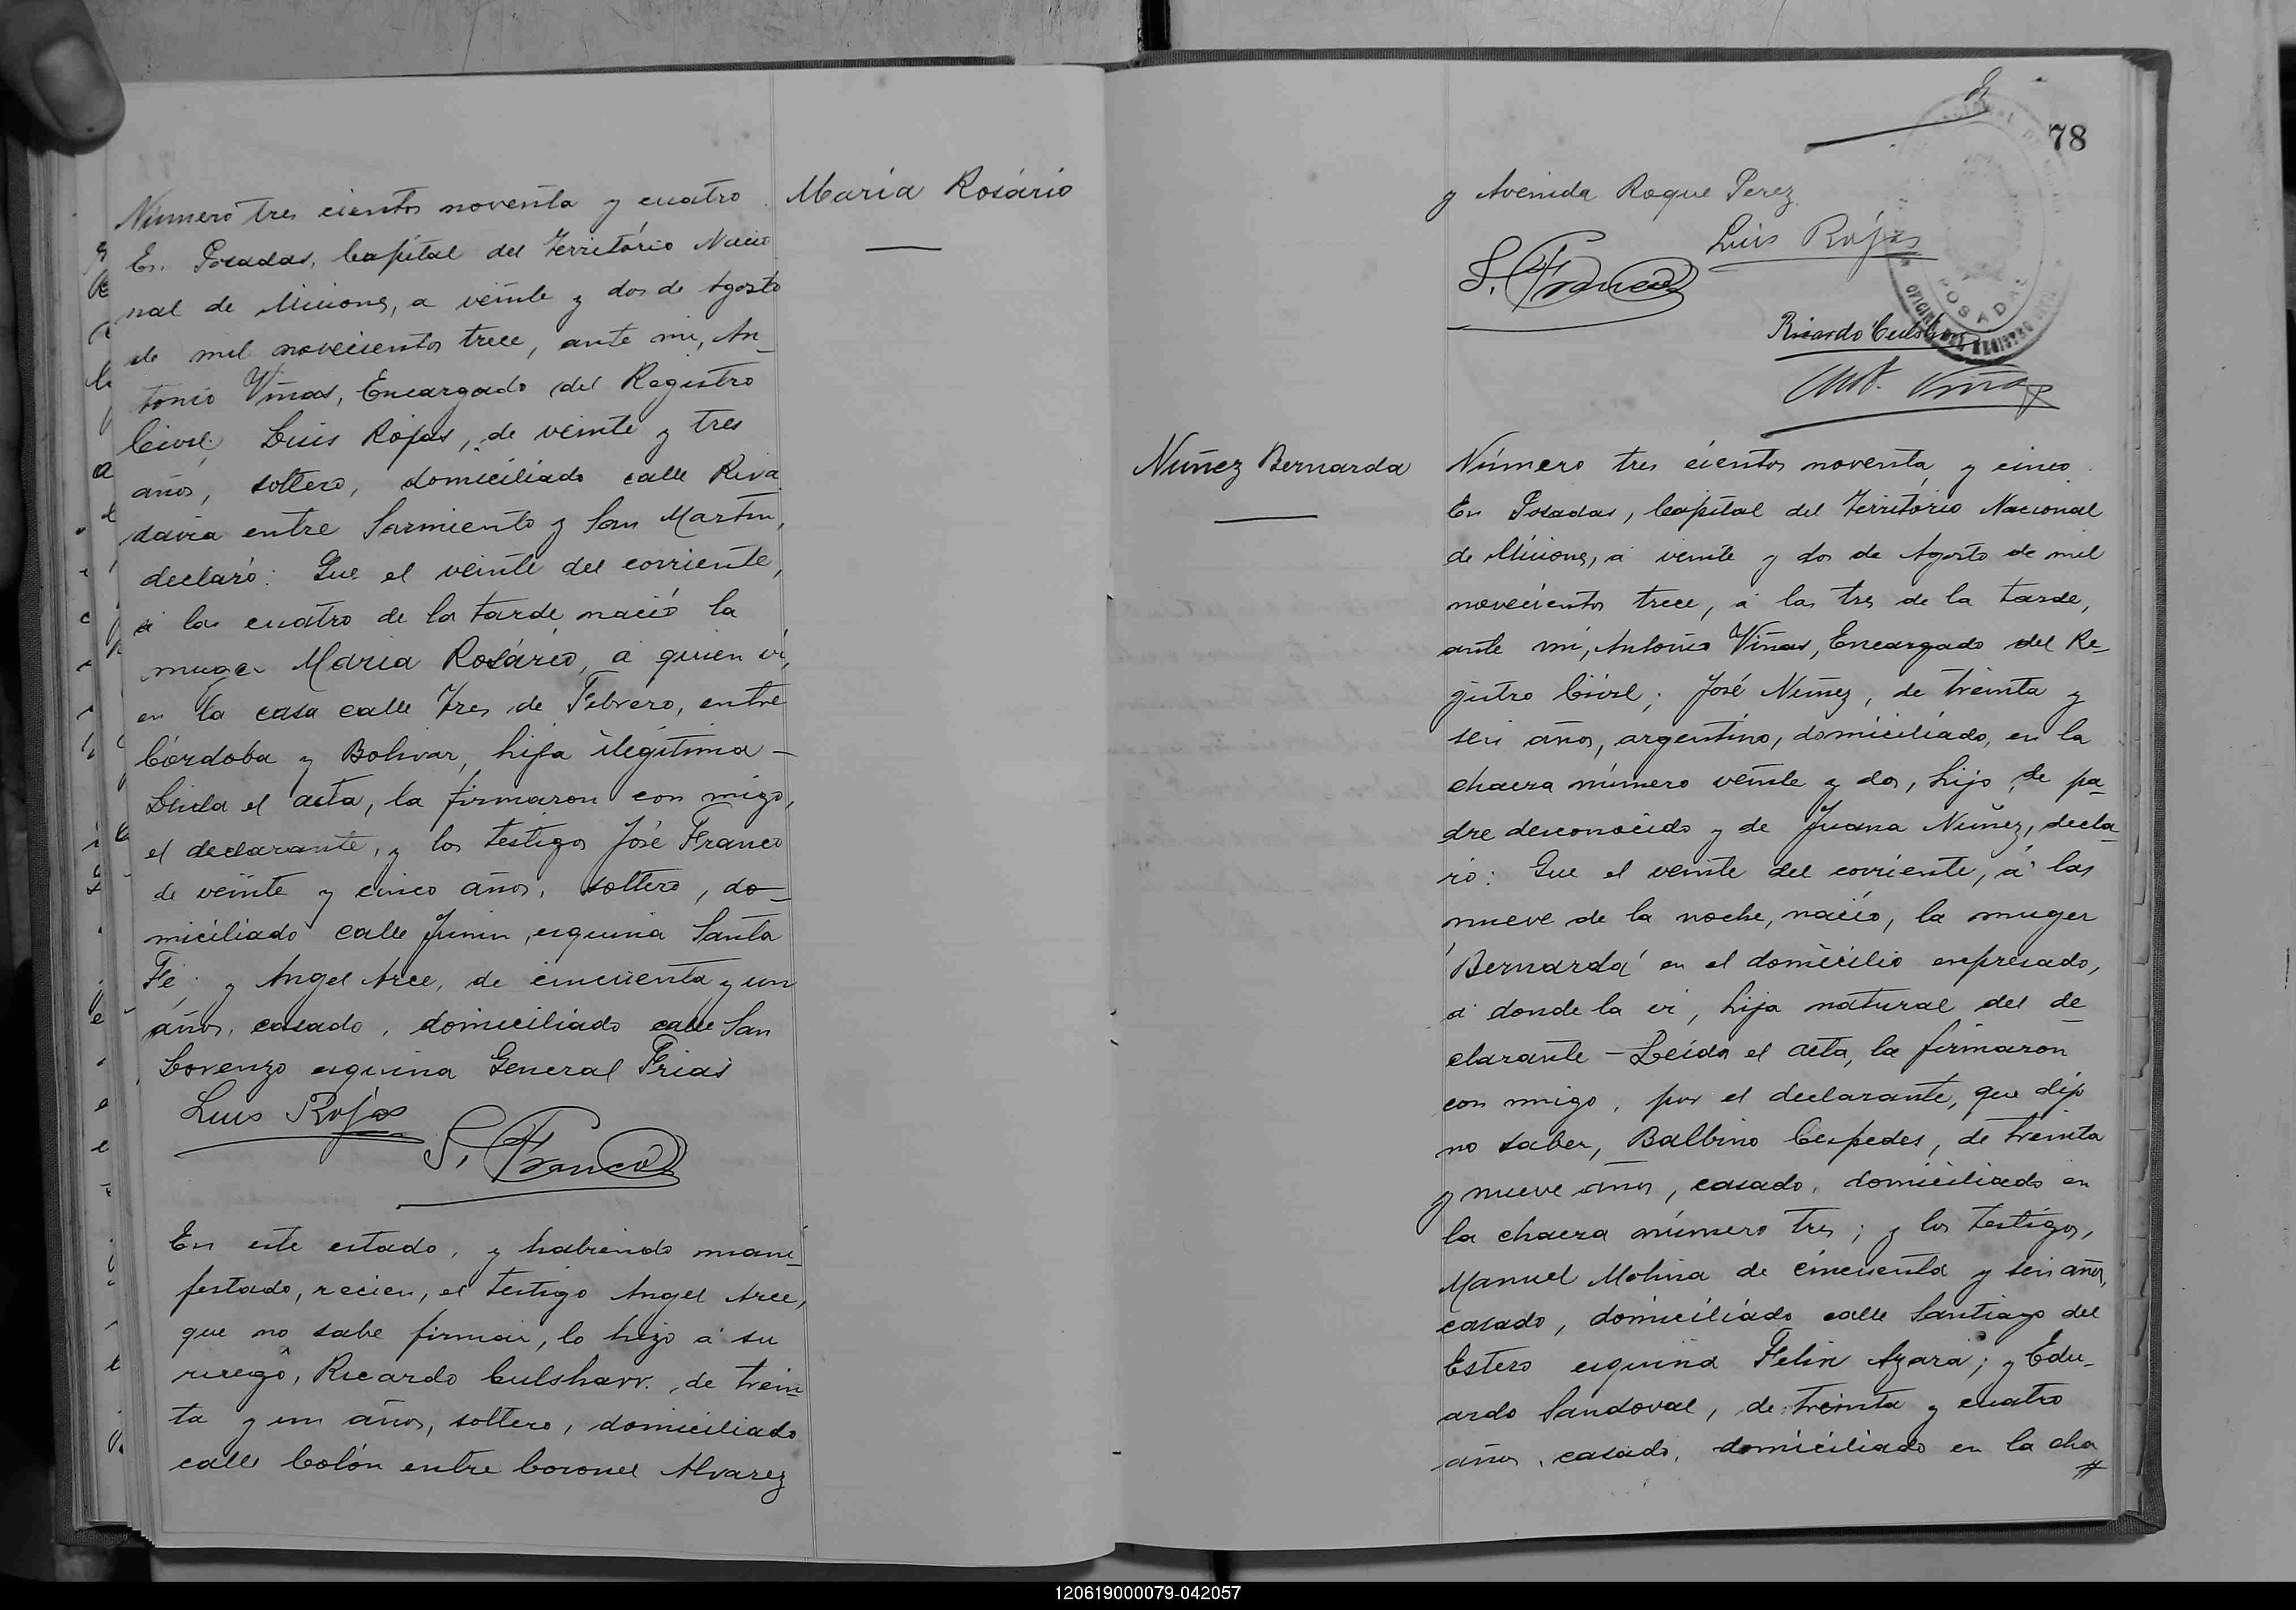 María Rosário
Número tres cientos noventa y cuatro.
En Posadas, Capital del Território Nacio
nal de Misiones, a veinte y dos de Agosto
de mil novecientos trece, ante mi, An-
tonio Viñas, Encargado del Registro
Civil, Luis Rojas, de veinte y tres
años, soltero, domiciliado calle Riva
davia entre Sarmiento y San Martin,
declaró: Que el veinte del corriente,
á las cuatro de la tarde nació la
muger María Rosário, á quien ví,
en la casa calle Tres de Febrero, entre
Córdoba y Bolivar, hija ilegitima –
Leida el acta, la firmaron con migo,
el declarante, y los testigos José Franco
de veinte y cinco años, soltero, do-
miciliado calle Junin, esquina Santa
Fé; y Angel Arce, de cincuenta y un
años, casado, domiciliado calle San
Lorenzo esquina General Frias
Luis Rojas
S. Franco
En este estado, y habiendo mani-
festado, recien, el testigo Angel Arce,
que no sabe firmar, lo hizo á su
ruego, Ricardo Culshaw, de trein-
ta y un años, soltero, domiciliado
calle Colón entre Coronel Alvarez
78
y Avenida Roque Perez.
Luis Rojas
S. Franco
Ricardo Culshaw
Ant. Viñas
POSADAS
OFICINA DEL REGISTRO CIVIL
Nuñez Bernarda
Número tres cientos noventa y cinco.
En Posadas, Capital del Território Nacional
de Misiones, á veinte y dos de Agosto de mil
novecientos trece, á las tres de la tarde,
ante mi, Antonio Viñas, Encargado del Re-
gistro Civil; José Nuñez, de treinta y
seis años, argentino, domiciliado, en la
chacra número veinte y dos, hijo de pa-
dre desconocido y de Juana Nuñez, decla-
ró: Que el veinte del corriente, á las
nueve de la noche, nació, la muger
"Bernarda" en el domicilio expresado,
á donde la ví, hija natural del de
clarante – Leida el acta, la firmaron
con migo, por el declarante, que dijo
no saber, Balbino Cespedes, de treinta
y nueve años, casado, domiciliado en
la chacra número tres; y los testigos,
Manuel Molina de cincuenta y seis años,
casado, domiciliado calle Santiago del
Estero esquina Felix Azara; y Edu-
ardo Sandoval, de treinta y cuatro
años, casado, domiciliado en la cha
#
120619000079-042057